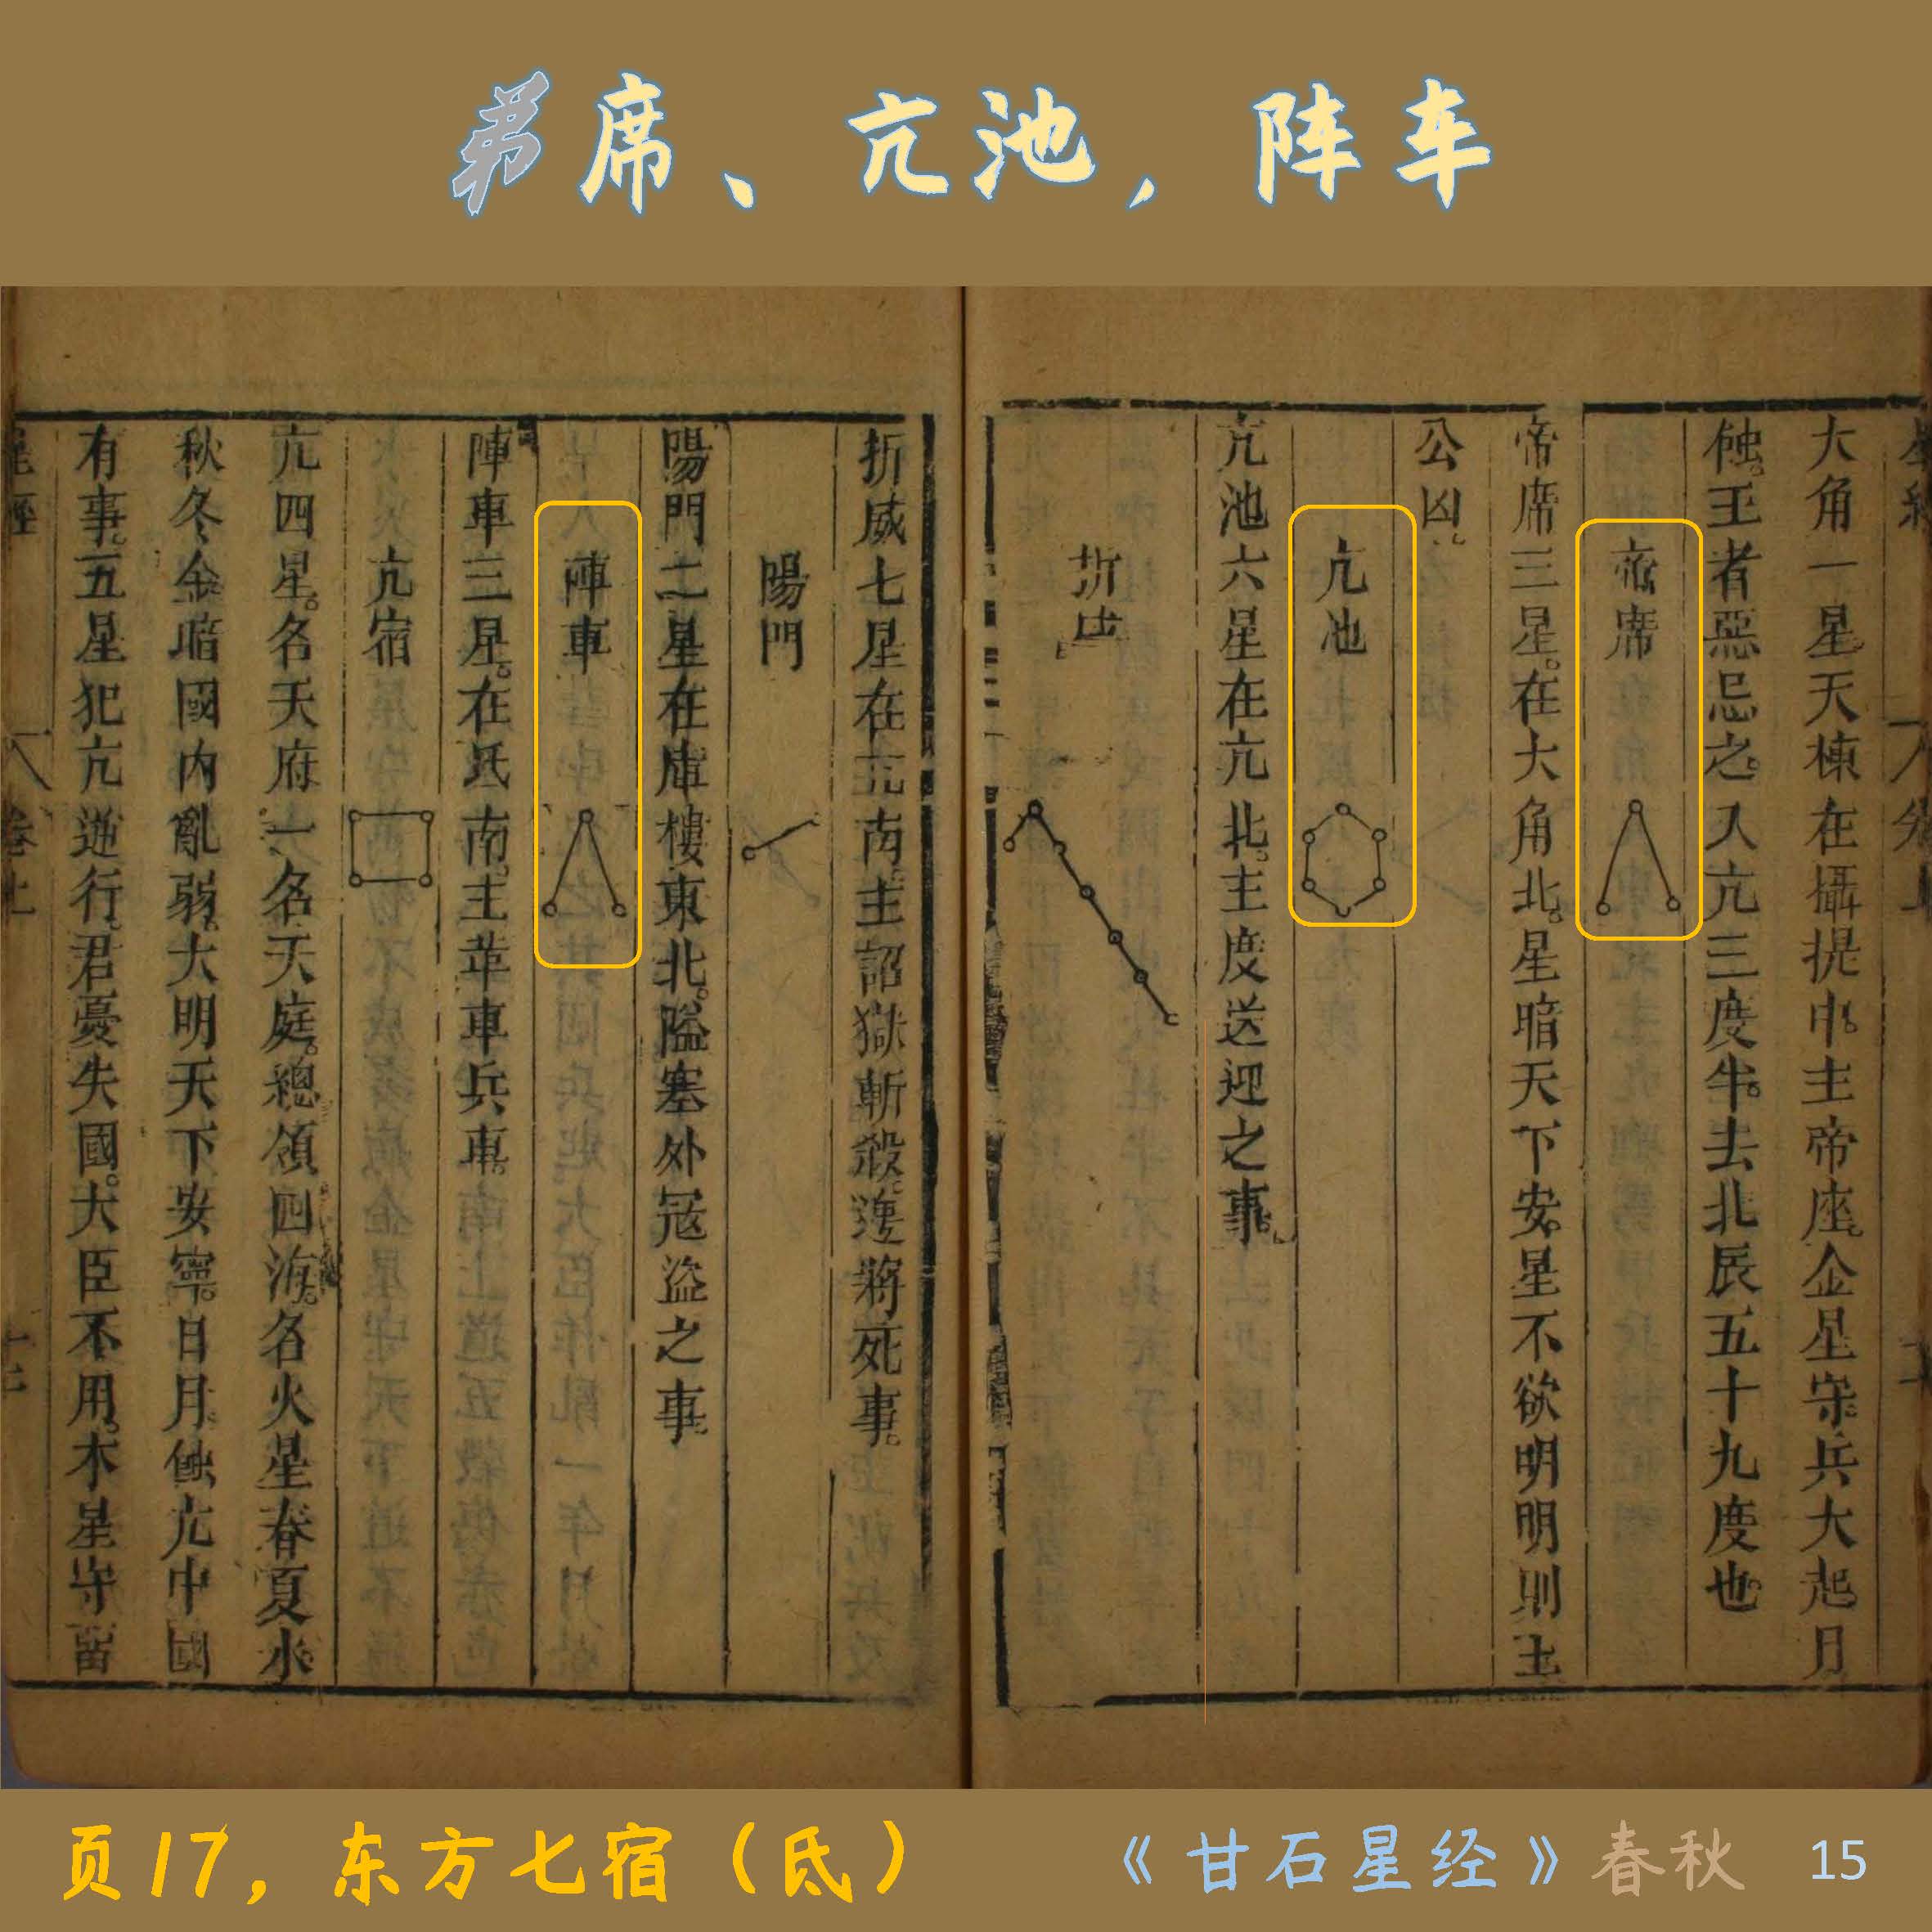 弟席、亢池，阵车
大角一星天棟在攝提中主帝座金星守兵大起月
蝕王者惡忌之入亢三度半去北辰五十九度也
帝席
帝席三星在大角北星暗天下安星不欲明明則王
公凶
亢池
亢池六星在亢北主度送迎之事
折
折威七星在亢南主詔獄斬殺 將死事
陽門
陽門二星在庫樓東北隘塞外冦盜之事
陣車
陣車三星在氐南主革車兵車
亢宿
亢四星名天府一名天庭總領四海名火星春夏水
秋冬金暗國内亂弱大明天下安寧日月蝕亢中國
有事五星犯亢逆行君憂失國大臣不用木星守留
页17，东方七宿（氐）
《甘石星经》春秋
15